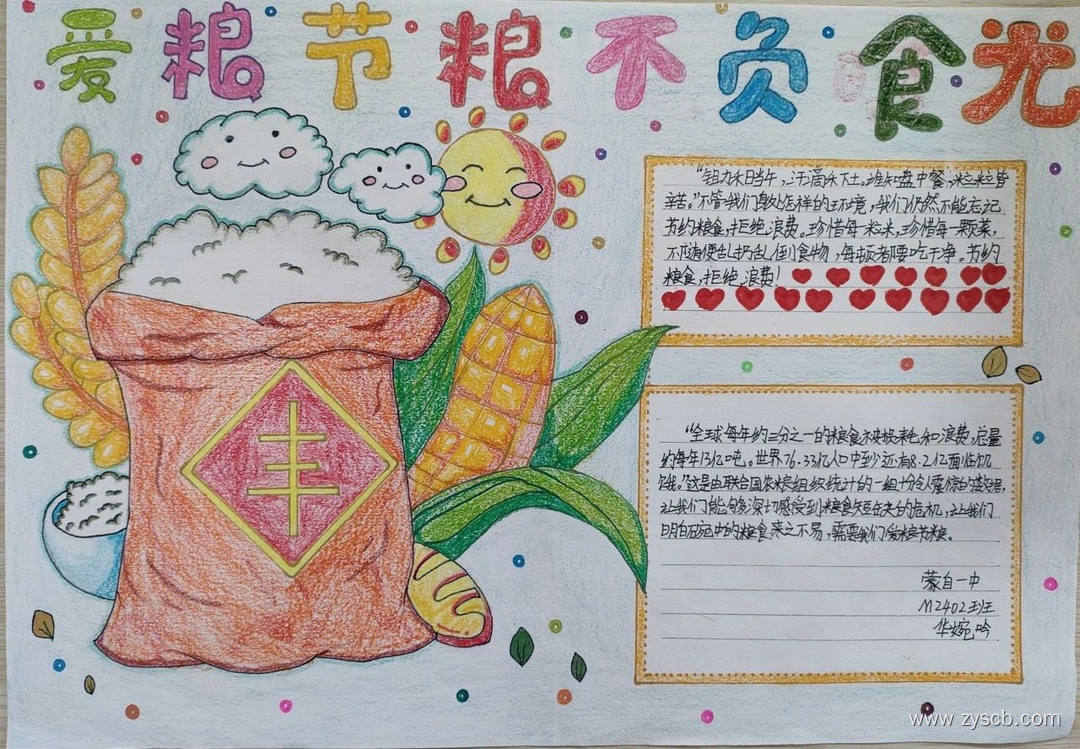 爱粮节粮不负食光
"锄禾日当午,汗滴禾下土。谁知盘中餐,粒粒皆
辛苦。"不管我们身处怎样的环境,我们仍然不能忘记
节约粮食,拒绝浪费。珍惜每一粒米,珍惜每一颗菜,
不随便乱扔乱倒食物,每顿都要吃干净。节约
粮食,拒绝浪费!
丰
"全球每年约三分之一的粮食被损耗和浪费,总量
约每年13亿吨。世界76.33亿人口中至少还有8.2亿面临饥
饿。"这是由联合国农粮组织统计的一组十分令人震惊的数据,
让我们能够深切感受到粮食短缺的危机,让我们
明白碗中的粮食来之不易,需要我们爱粮节粮。
蒙自一中
M2402班
华婉吟
www.zyscb.com